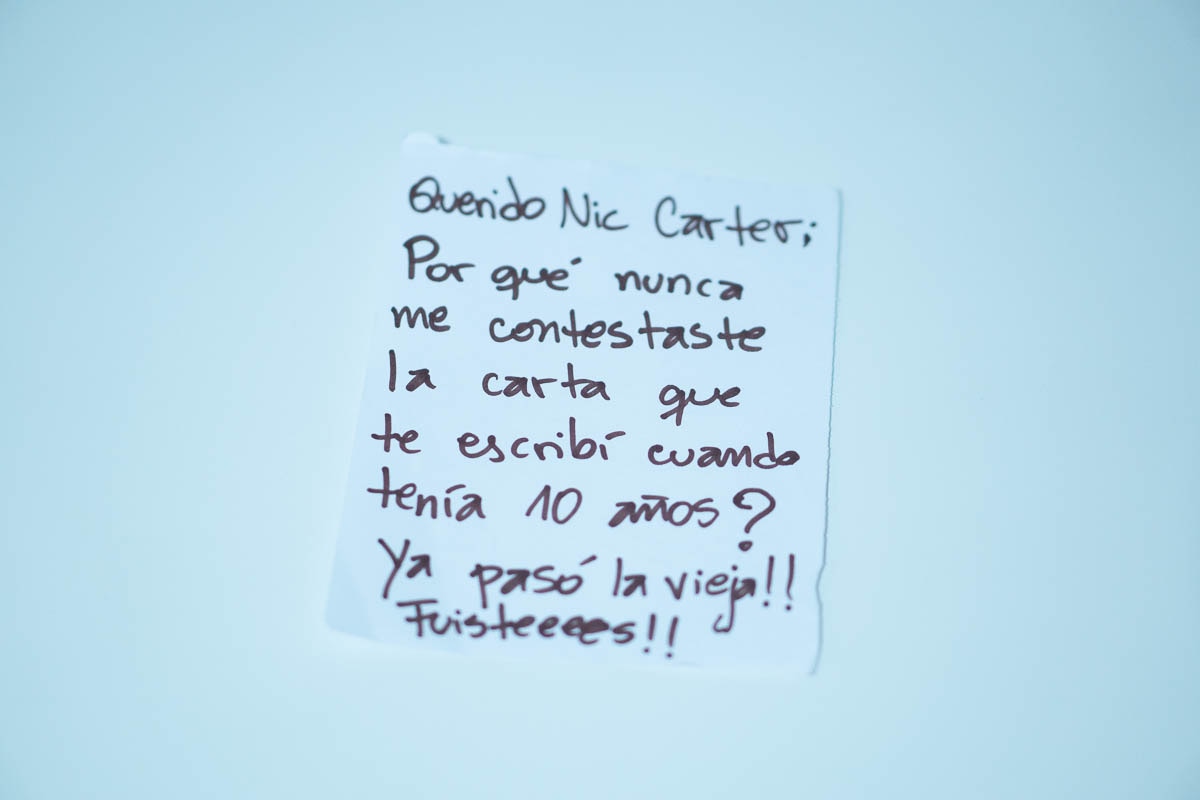 Querido Nic Carter;
Por qué nunca
me contestaste
la carta que
te escribí cuando
tenía 10 años?
Ya pasó la vieja!!
Fuisteeees!!